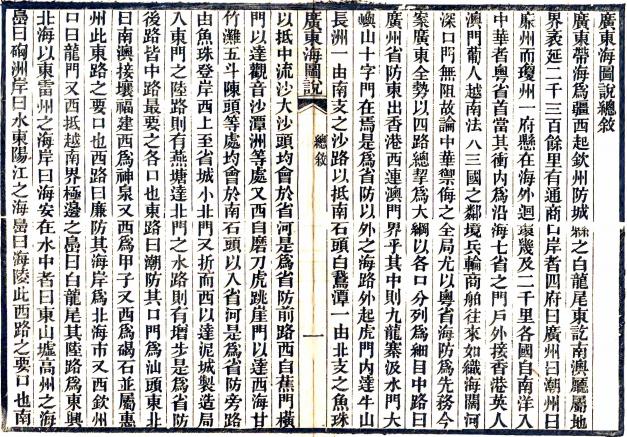 廣東海圖說總敘
廣東帶海爲疆西起欽州防城縣之白龍尾東訖南澳廳屬地
界袤延二千三百餘里有通商口岸者四府曰廣州曰潮州曰
廉州而瓊州一府懸在海外迴環幾及二千里各國自南洋入
中華者粵省首當其衝內爲沿海七省之門戶外接香港英人
澳門葡人越南法人三國之鄰境兵輪商舶往來如織海闊河
深口門無阻故論中華禦侮之全局尤以粵省海防爲先務今
案廣東全勢以四路總挈爲大綱以各口分列爲細目中路曰
廣州省防東出香港西連澳門界乎其中則九龍寨汲水門大
嶼山十字門在焉是爲省防以外之海路外起虎門內達牛山
長洲一由南支之沙路以抵南石頭白鵞潭一由北支之魚珠
廣東海圖說
總敘
一
以抵中流沙大沙頭均會於省河是爲省防前路西自蕉門橫
門以達觀音沙潭洲等處又西自磨刀虎跳崖門以達西海甘
竹灘五斗陳頭等處均會於南石頭以入省河是爲省防旁路
由魚珠登岸西上至省城小北門又折而西以達泥城製造局
入東門之陸路則有燕塘達北門之水路則有增步是爲省防
後路皆中路最要之各口也東路曰潮防其口門爲汕頭東北
曰南澳接壤福建西爲神泉又西爲甲子又西爲碣石並屬惠
州此東路之要口也西路曰廉防其海岸爲北海市又西欽州
口曰龍門又西抵越南界極邊之嶴曰白龍尾其陸路爲東興
北海以東雷州之海岸曰海安在水中者曰東山墟高州之海
嶴曰硇洲岸曰水東陽江之海嶴曰海陵此西路之要口也南